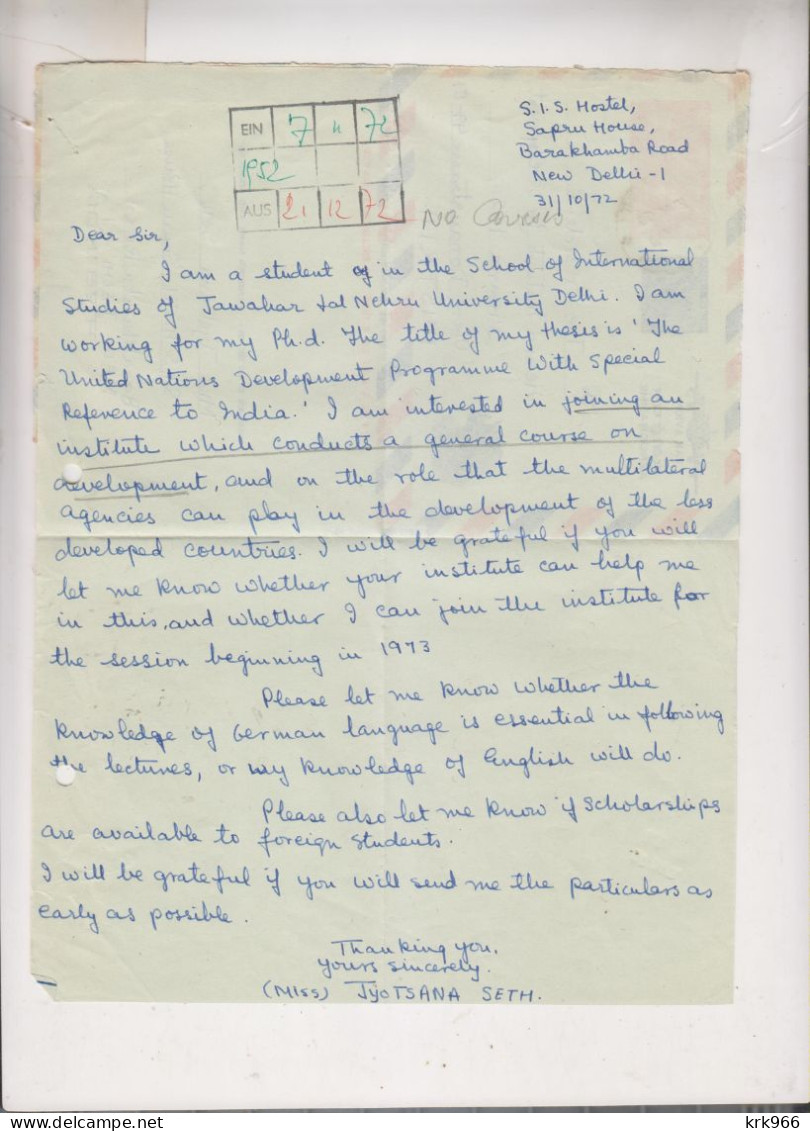 S.I.S. Hostel,
Sapru House,
Barakhamba Road
New Delhi-1
31/10/72
EIN 7 11 72
1952
AUS 21 12 72
No Courses
Dear Sir,
I am a student of in the School of International
Studies of Jawahar Lal Nehru University Delhi. I am
working for my Ph.d. The title of my thesis is 'The
United Nations Development Programme With Special
Reference to India.' I am interested in joining an
institute which conducts a general course on
development, and on the role that the multilateral
agencies can play in the development of the less
developed countries. I will be grateful if you will
let me know whether your institute can help me
in this, and whether I can join the institute for
the session beginning in 1973
Please let me know whether the
knowledge of German language is essential in following
the lectures, or my knowledge of English will do.
Please also let me know if Scholarships
are available to foreign students.
I will be grateful if you will send me the particulars as
early as possible.
Thanking you.
Yours sincerely.
(Miss) JyOTSANA SETH.
krk966